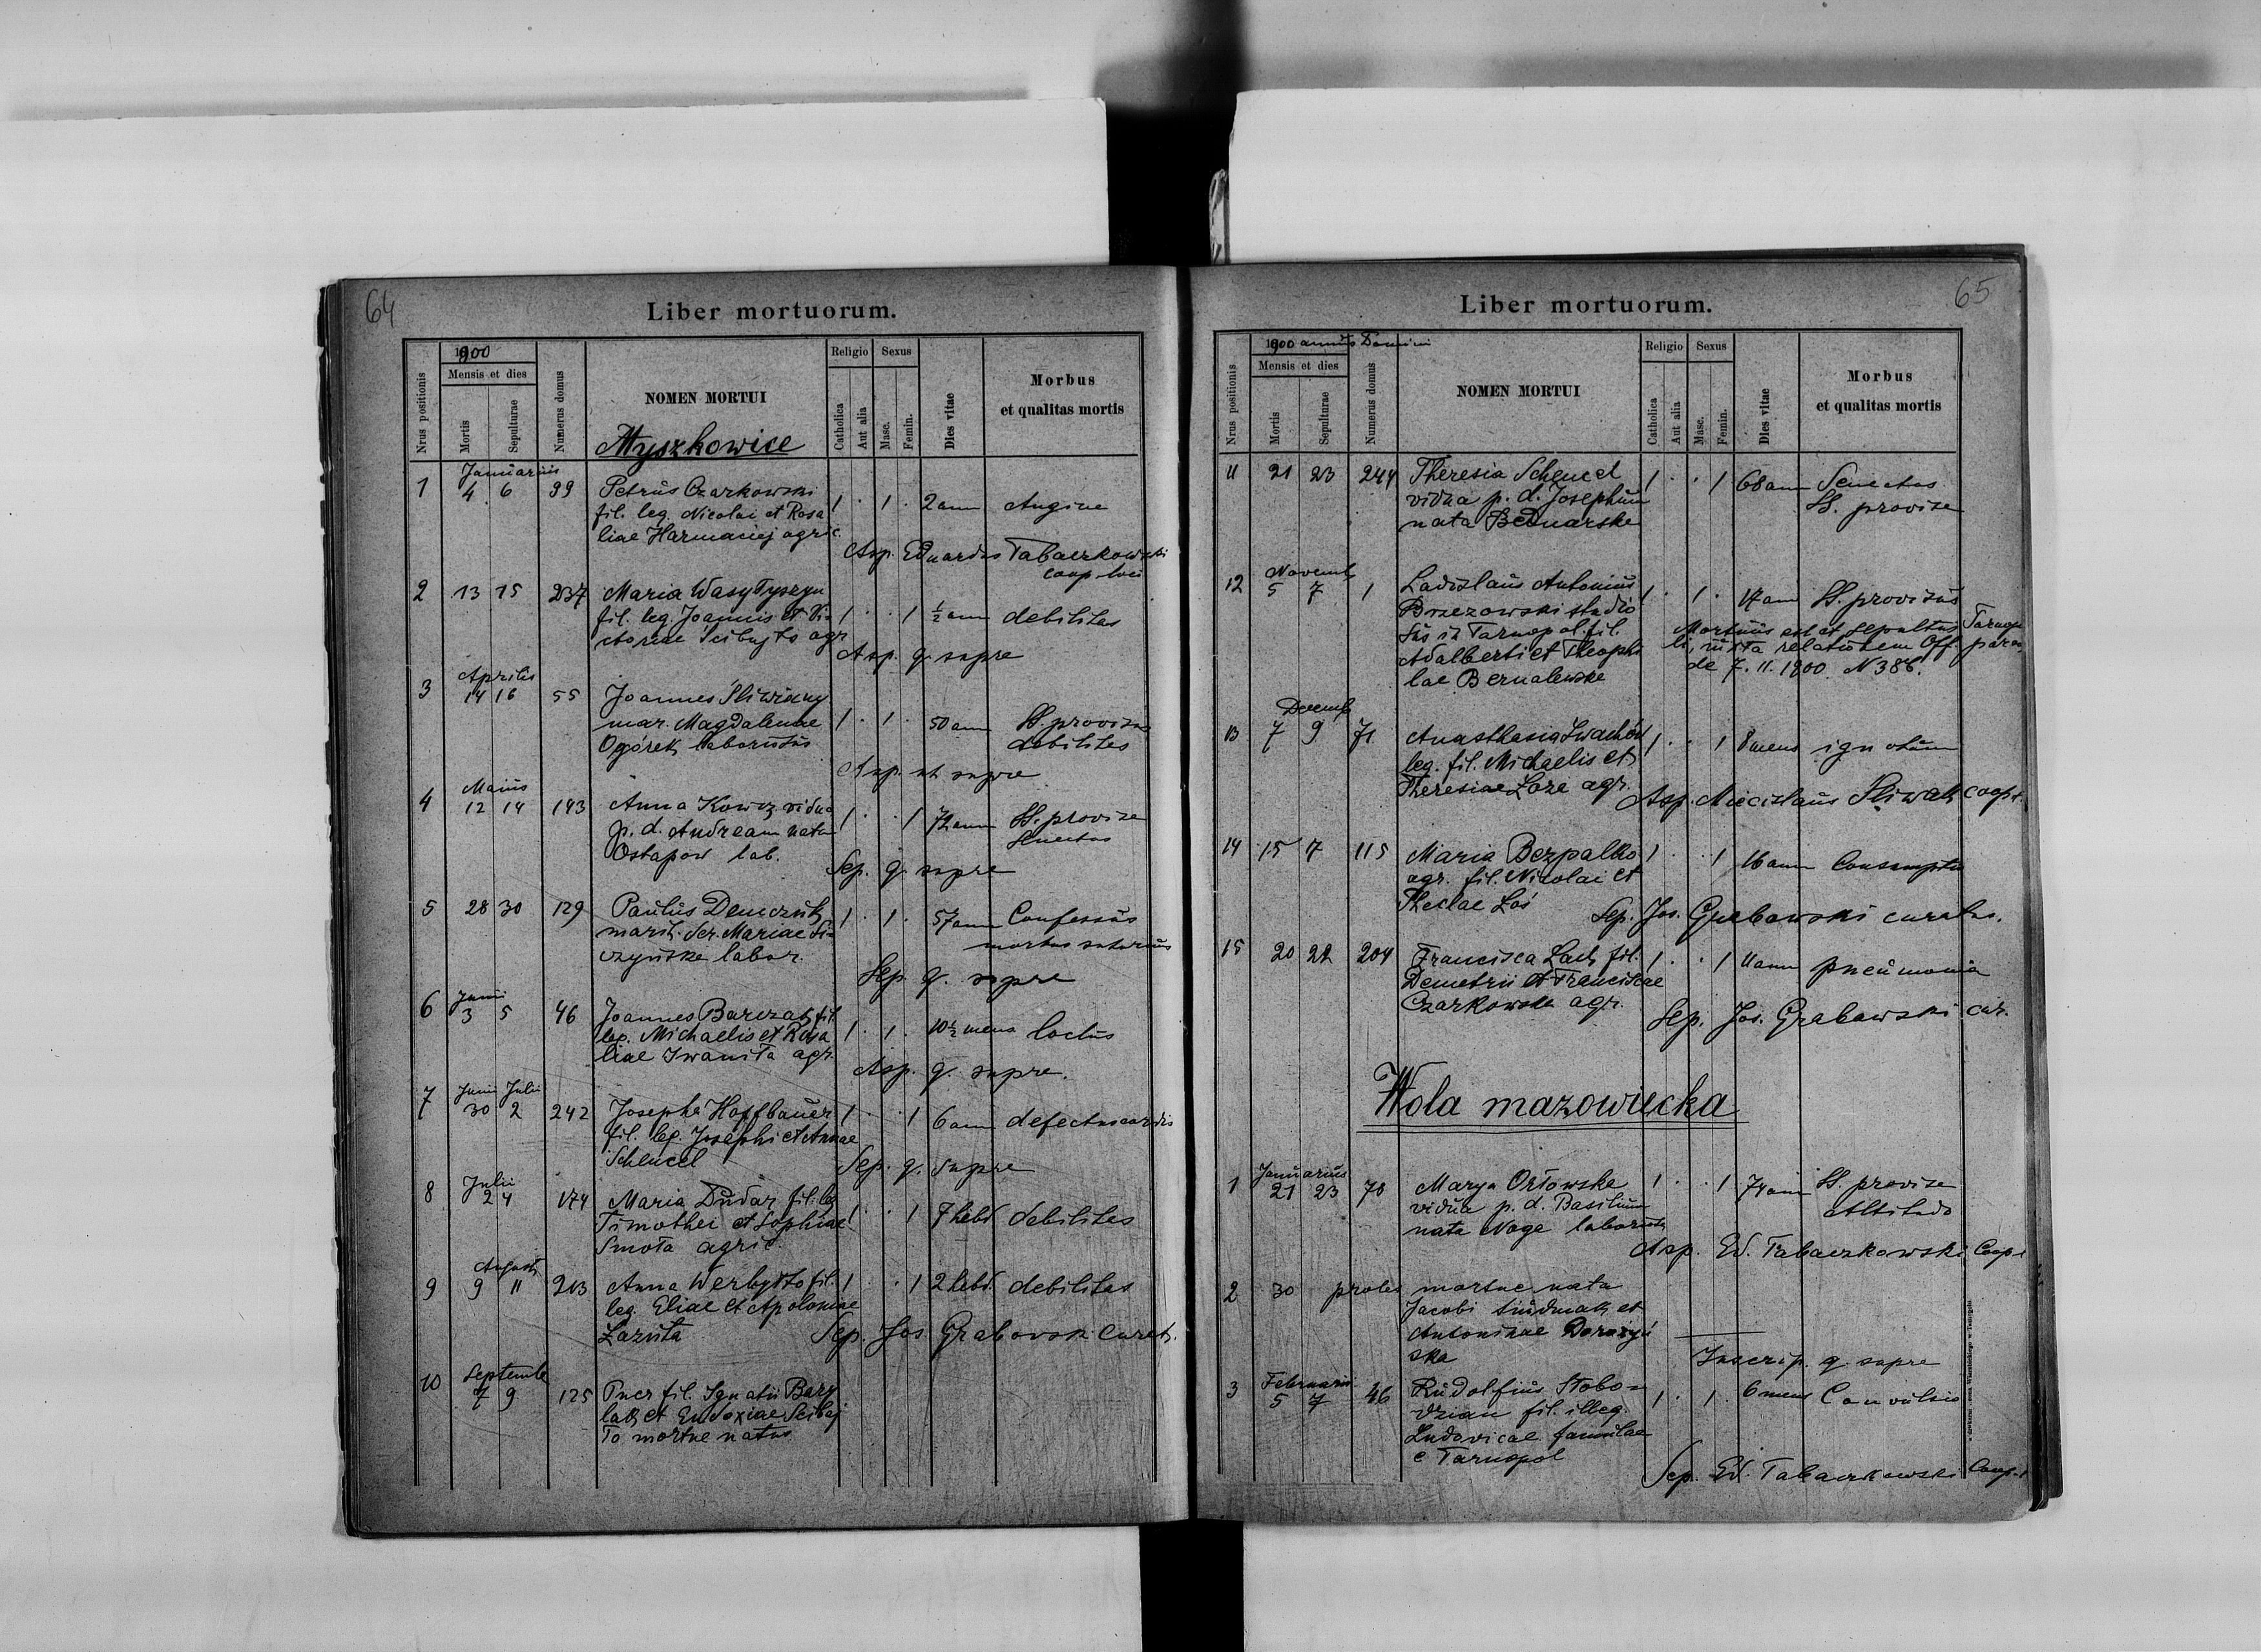 64
Liber mortuorum.
1900
Mensis et dies
Nrus positionis
Mortis
Sepulturae
Numerus domus
NOMEN MORTUI
Religio
Sexus
Catholica
Aut alia
Masc.
Femin.
Dies vitae
Morbus
et qualitas mortis
Myszkowice
Januarius
1 4 6 39 Petrus Czarkowski 1 · 1 · 2 ann Angine
fil. leg. Nicolai et Rosa
liae Harmaciej agric.
Asp. Eduardus Tabaczkowski
coop. loci
2 13 15 237 Maria Wasyłyszyn 1 · · 1 ½ ann debilitas
fil. leg. Joannis et Vi-
ctoriae Ścibajło agr
Asp. q. supra
Aprilis
3 14 16 55 Joannes Śliwiany 1 · 1 · 50 ann SS. provisus
mar. Magdalenae debilitas
Ogórek laboriosus
Asp. ut supra
Maius
4 12 14 143 Anna Kowcz vidua 1 · · 1 72 ann SS. provisa
p. d. Andream nata senectus
Ostapow lab.
Sep. q. supra
5 28 30 129 Paulus Demczuk 1 · 1 · 57 ann Confessus
marit. Scr. Mariae Si-
czyńska labor.
Sep. q. supra
Junii
6 3 5 46 Joannes Barczak fil. 1 · 1 · 10½ mens
leg. Michaelis et Rosa
liae Iwanita agr.
Asp. q. supra.
Junii Julii
7 30 2 242 Josepha Hoffbauer 1 · · 1 6 ann defectus cordis
fil. leg. Josephi et Annae
Schencel
Sep. q. supra
Julii
8 2 4 174 Maria Dudar fil. leg 1 · · 1 7 hebd debilitas
Timothei et Sophiae
Smota agric.
August
9 9 11 213 Anna Werbytło fil. 1 · · 1 2 hebd. debilitas
leg. Eliae et Apoloniae
Łazuta
Sep. Jos. Grabowski curat.
Septembr
10 7 9 125 Puer fil. Ignatii Bary
lak et Eudoxiae Ścibaj
ło mortue natus
65
Liber mortuorum.
1900 annus Domini
Mensis et dies
Nrus positionis
Mortis
Sepulturae
Numerus domus
NOMEN MORTUI
Religio
Sexus
Catholica
Aut alia
Masc.
Femin.
Dies vitae
Morbus
et qualitas mortis
11 21 23 244 Theresia Schencel 1 · · 1 68 ann Senectus
vidua p. d. Josephum SS. provisa
nata Bednarska
Novemb
12 5 7 1 Ladislaus Antonius 1 · 1 · 17 ann SS. provisus
Brzezowski studio
sus in Tarnopol fil.
Adalberti et Theophi
lae Bernalewska
Mortuus est et sepultus Tarnopo
li, iuxta relationem Off. paroch.
de 7. 11. 1900. N 386.
Decemb
13 7 9 71 Anasthasia Iwachów 1 · · 1 8 mens ignotum
leg. fil. Michaelis et
Theresiae Łoza agr.
Asp. Miecislaus Śliwak coop.
14 15 17 115 Maria Bezpalko 1 · · 1 16 ann Consumptio
agr. fil. Nicolai et
Theclae Łoś
Sep. Jos. Grabowski curatus.
15 20 22 204 Francisca Lach fil. 1 · · 1 11 ann pneumonia
Demetrii et Franciscae
Czarkowska agr.
Sep. Jos. Grabowski cur.
Wola mazowiecka
Januarius
1 21 23 70 Marya Orłowska 1 · · 1 74 ann SS. provisa
vidua p. d. Basilium
nata Noga laboriosa
Asp. Ed. Tabaczkowski Coop.
2 30 proles mortue nata
Jacobi Siudmak et
Antoninae Dorożyń
ska
Inscrip. q. supra
Februarii
3 5 7 46 Rudolfius Słobo- 1 · 1 · 6 mens Convulsio
dzian fil. illeg.
Ludovicae famulae
e Tarnopol
Sep. Ed. Tabaczkowski Coop.